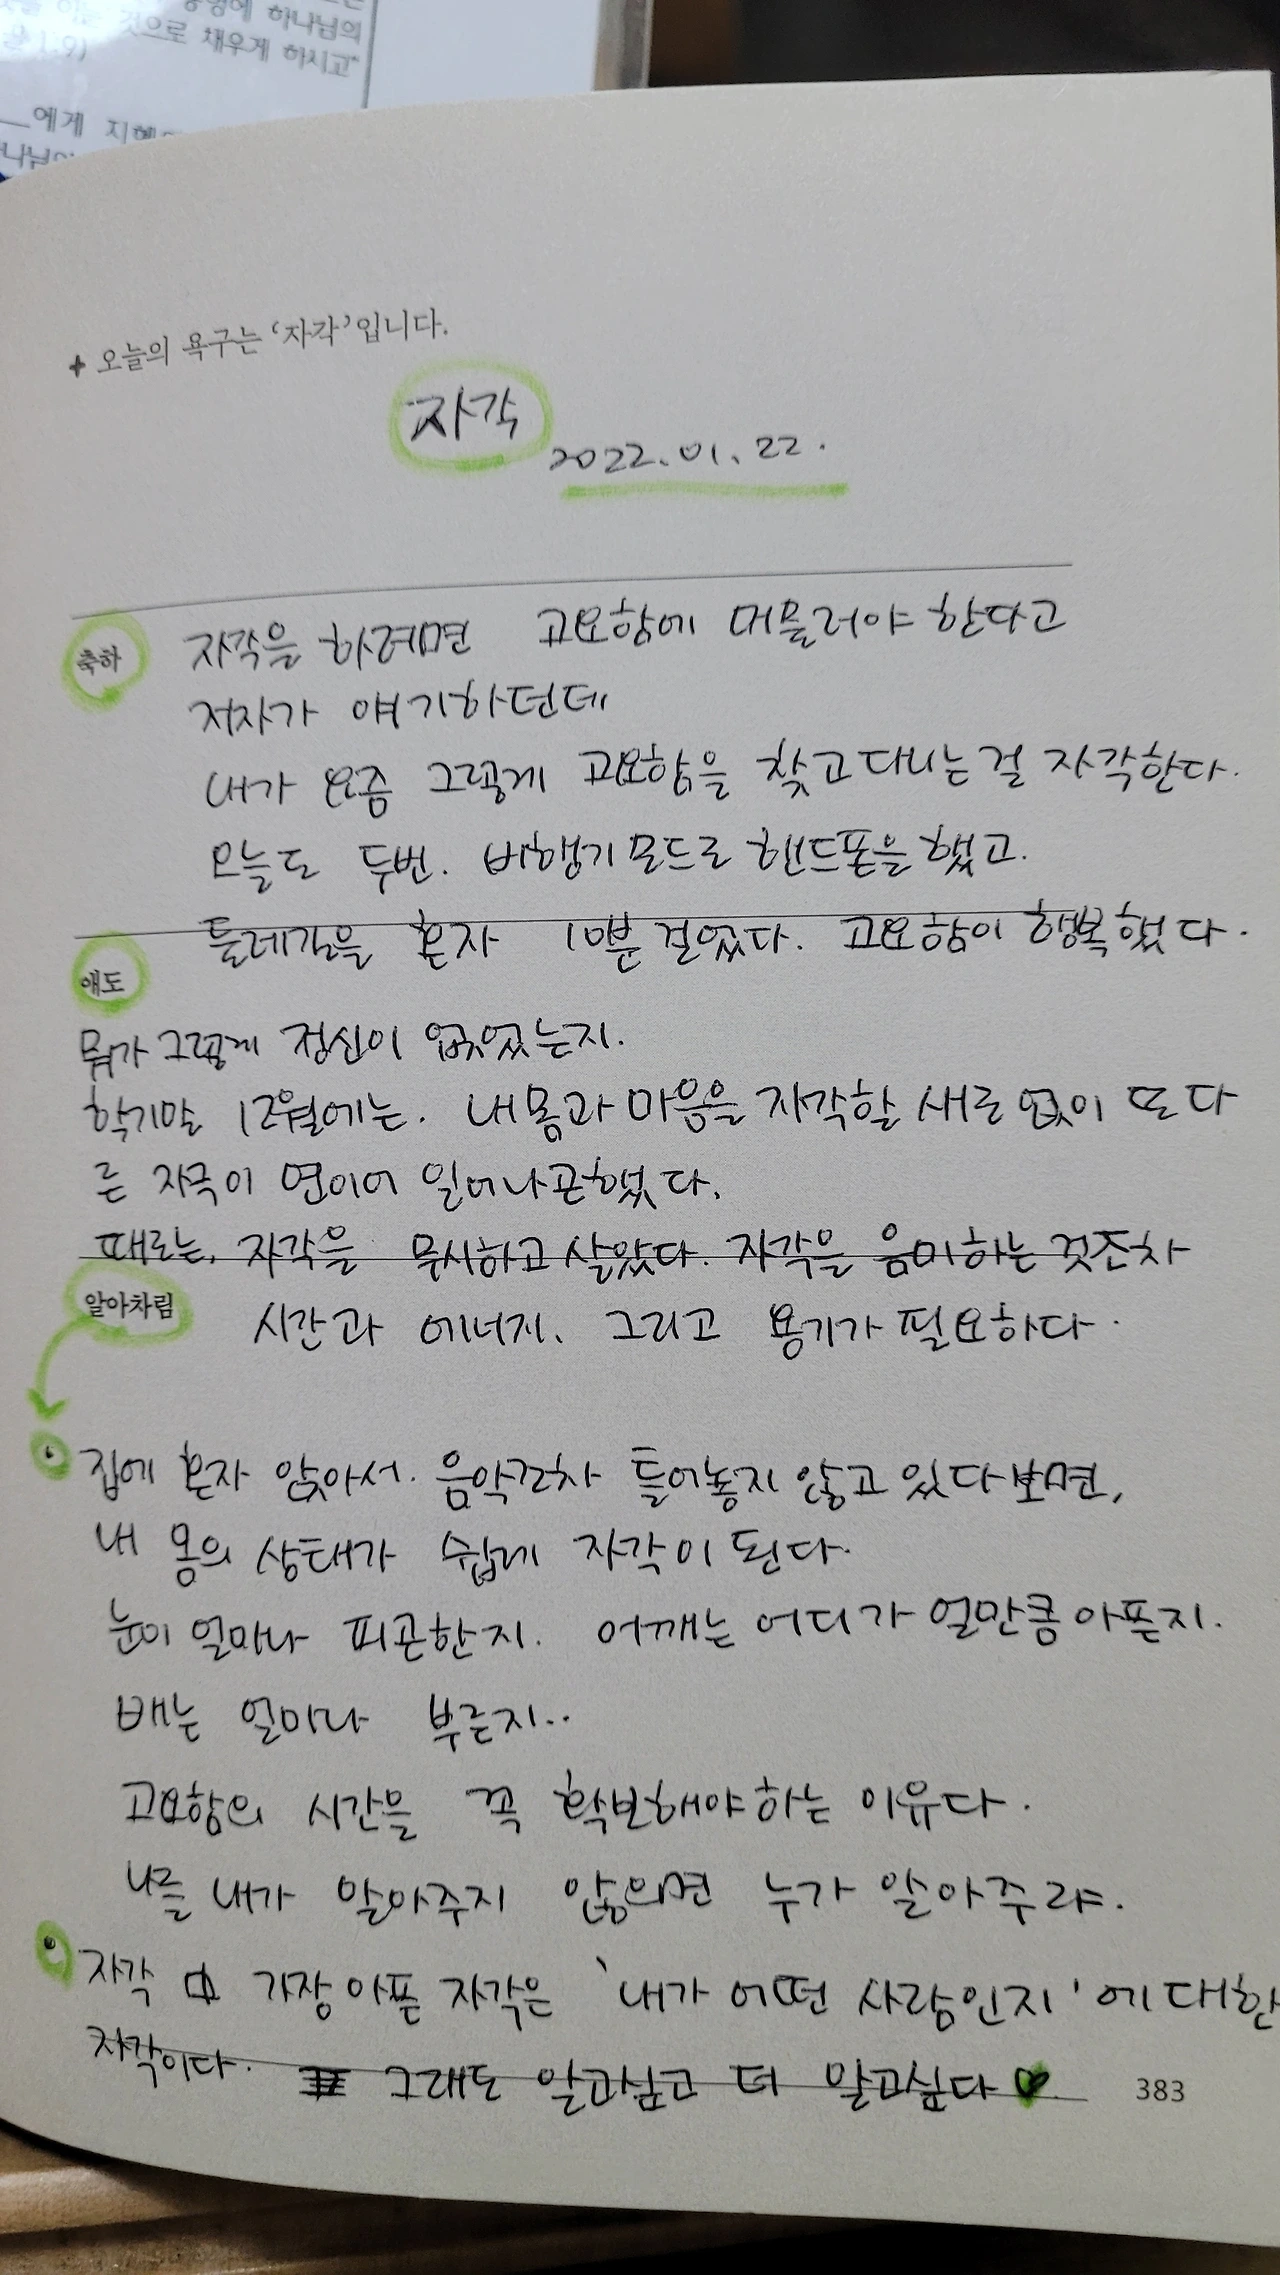 하나님의
것으로 채우게 하시고"
1:9)
에게 지혜
+ 오늘의 욕구는 '자각'입니다.
자각
2022.01.22.
축하
자각을 하려면 고요함에 머물러야 한다고
저자가 얘기하던데
내가 요즘 그렇게 고요함을 찾고다니는걸 자각한다.
오늘도 두번. 비행기모드로 핸드폰을 했고.
둘레길을 혼자 10분 걸었다. 고요함이 행복했다.
애도
뭐가 그렇게 정신이 없었는지.
학기말 12월에는. 내몸과 마음을 자각할 새로 없이 또다
른 자극이 연이어 일어나곤했다.
때로는, 자각을 무시하고 살았다. 자각을 음미하는 것조차
알아차림
시간과 에너지. 그리고 용기가 필요하다.
집에 혼자 앉아서. 음악조차 틀어놓지 않고 있다보면,
내 몸의 상태가 쉽게 자각이 된다.
눈이 얼마나 피곤한지. 어깨는 어디가 얼만큼 아픈지.
배는 얼마나 부른지..
고요함의 시간을 꼭 확보해야하는 이유다.
나를 내가 알아주지 않으면 누가 알아주랴.
자각 中 가장 아픈 자각은 '내가 어떤 사람인지'에 대한
자각이다. 그래도 알고싶고 더 알고싶다 ♥
383